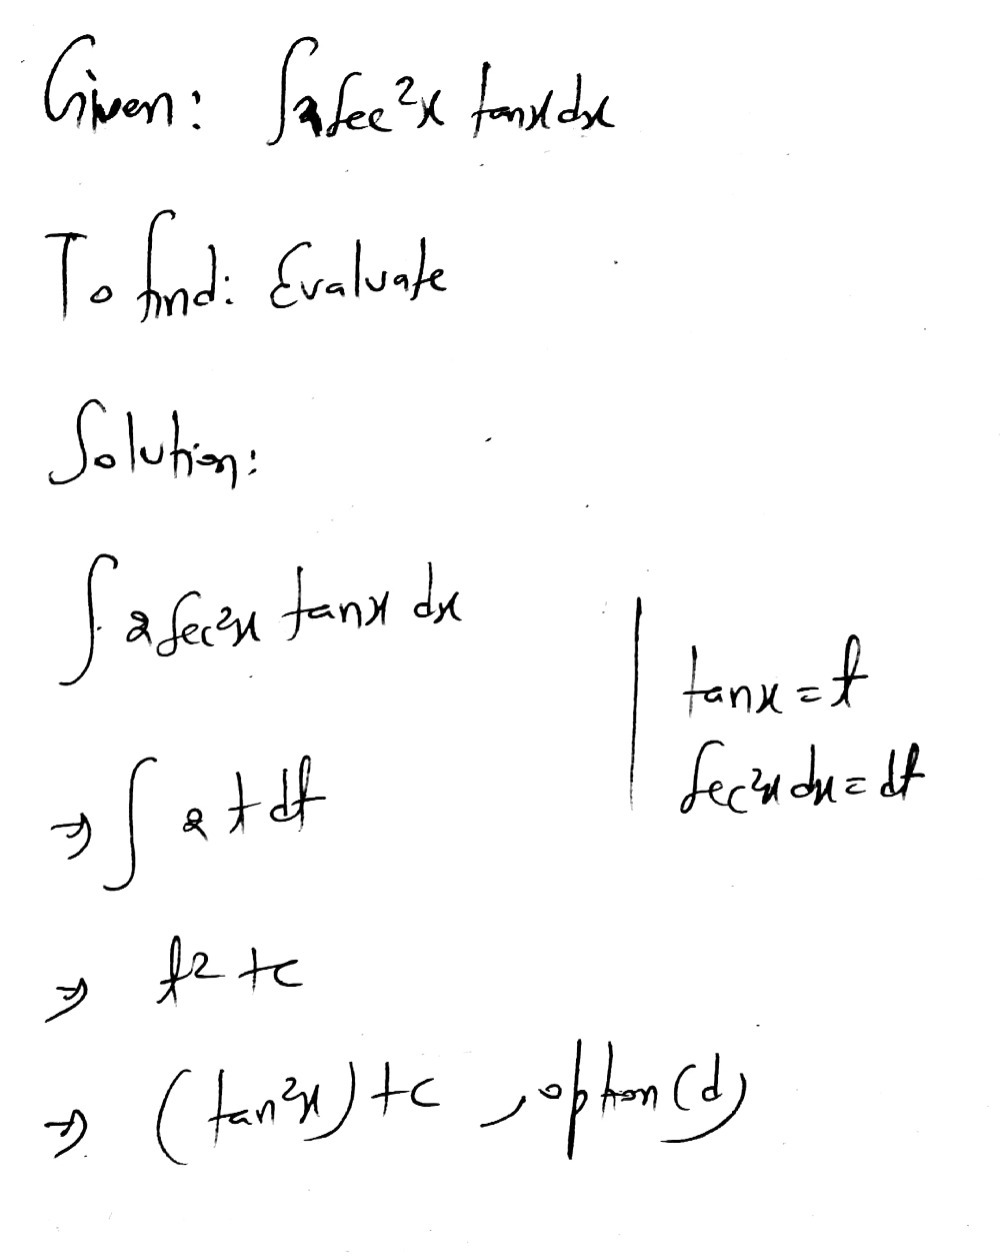 Given: ∫2sec²x tanx dx
To find: Evaluate
Solution:
∫ 2sec²x tanx dx
tanx = t
sec²x dx = dt
⇒ ∫ 2 t dt
⇒ t² + c
⇒ (tan²x) + c , option (d)